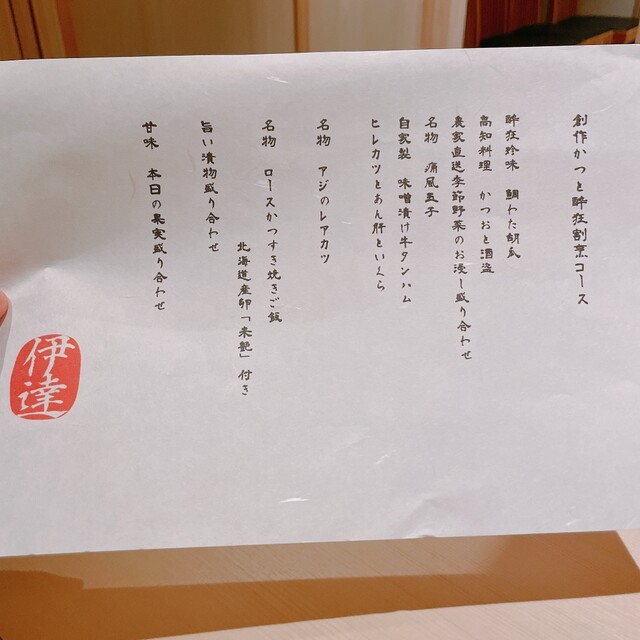 創作かつと酔狂割烹コース
酔狂珍味 鯛わた胡瓜
高知料理 かつおと酒盗
農家直送季節野菜のお浸し盛り合わせ
名物 痛風玉子
自家製 味噌漬け牛タンハム
ヒレカツとあん肝といくら
名物 アジのレアカツ
名物 ロースかつすき焼きご飯
北海道産卵「米艶」付き
旨い漬物盛り合わせ
甘味 本日の果実盛り合わせ
伊達